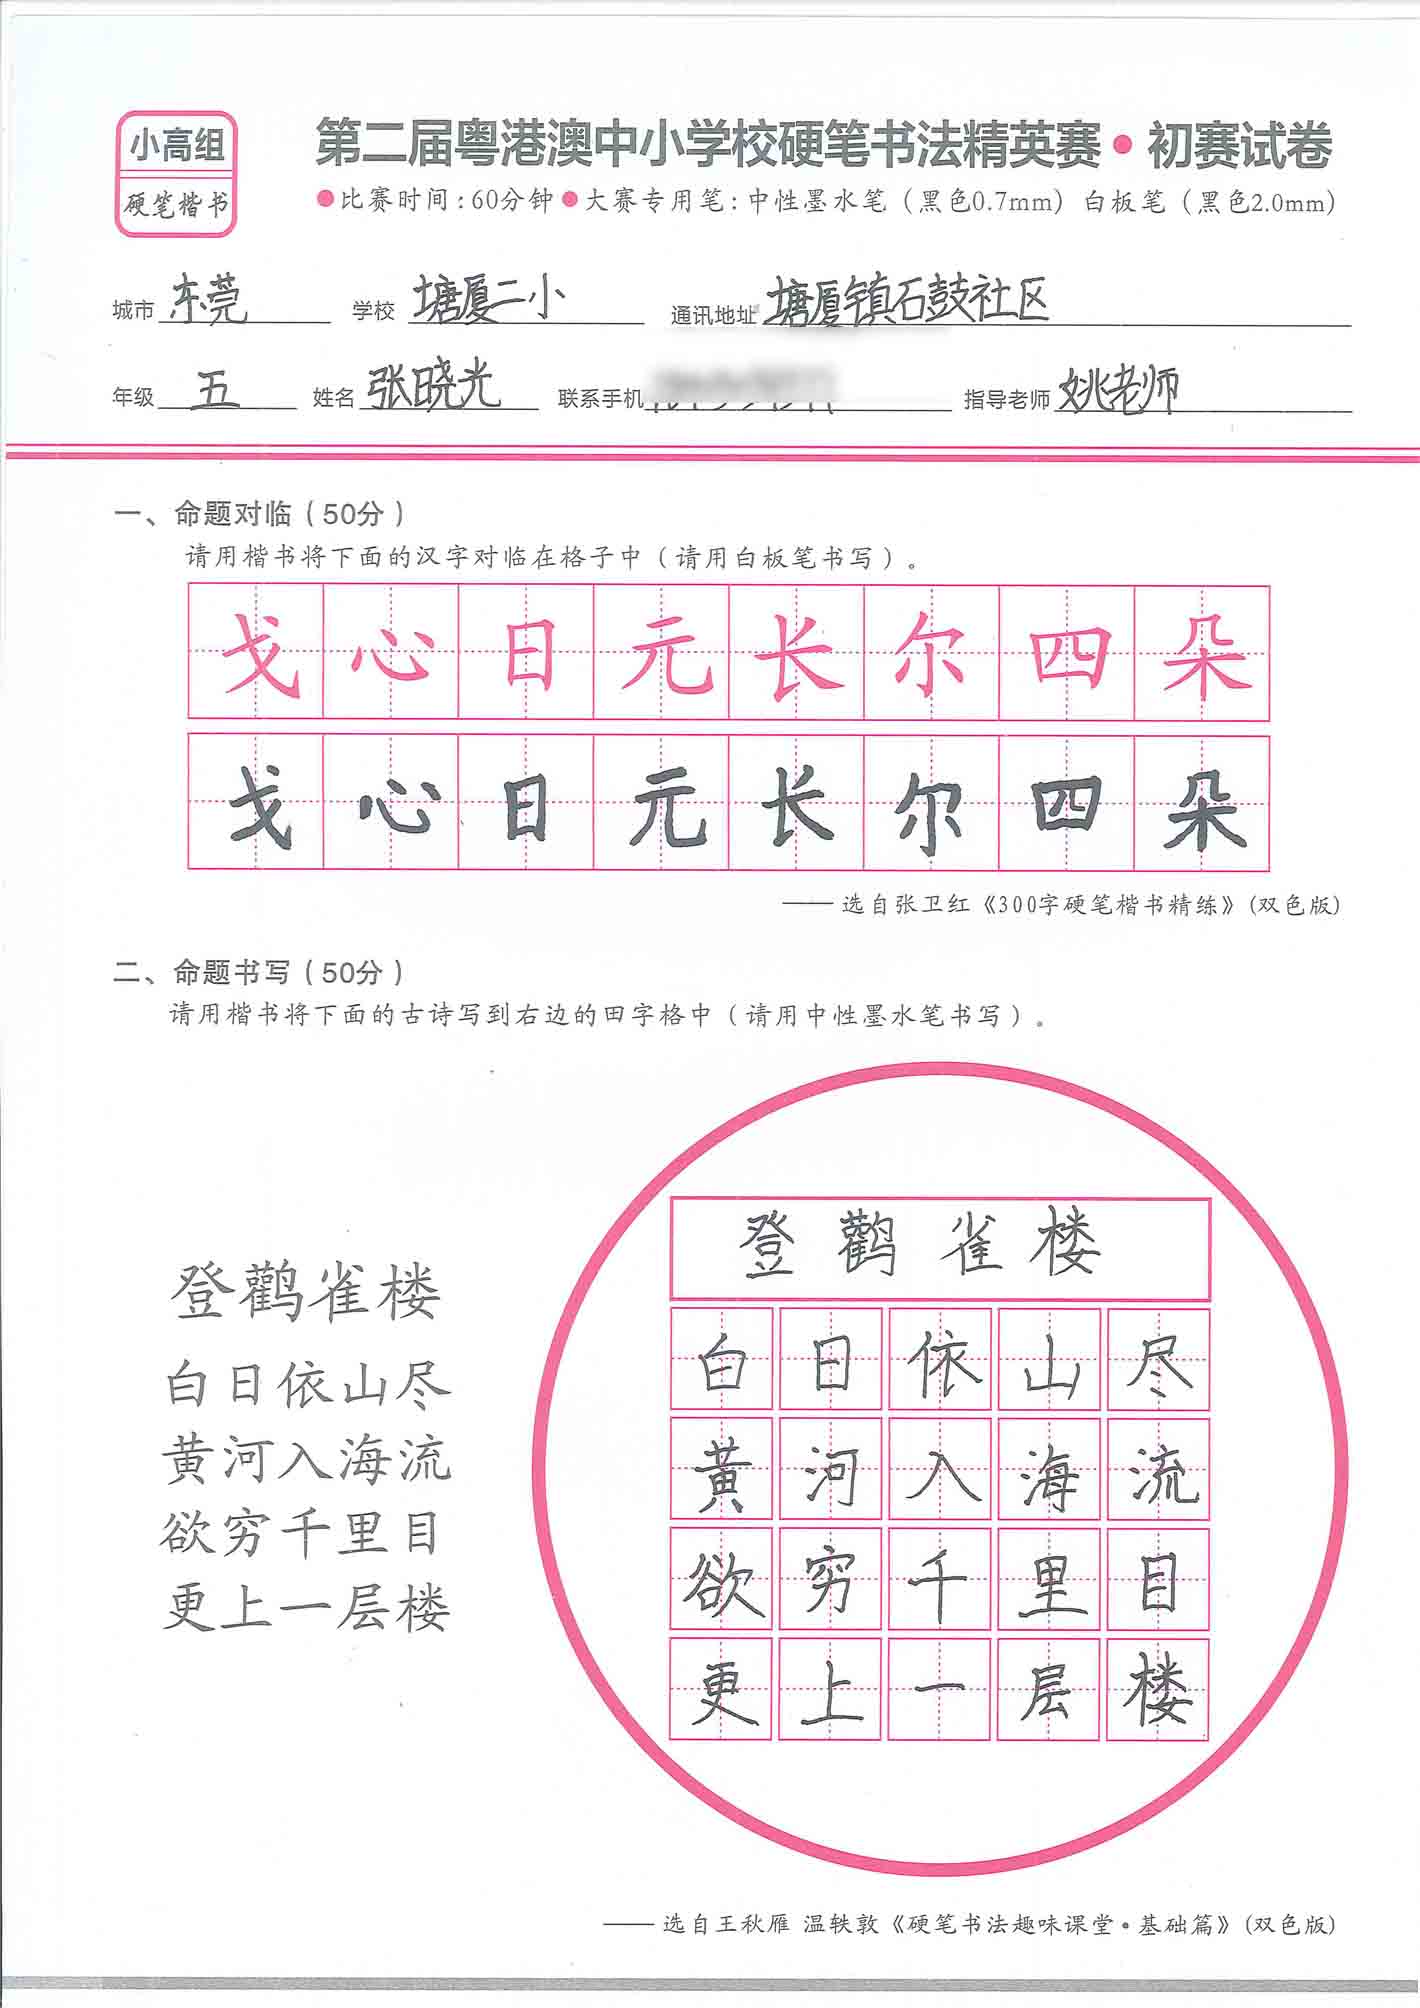 小高组
硬笔楷书
第二届粤港澳中小学校硬笔书法精英赛•初赛试卷
●比赛时间:60分钟●大赛专用笔:中性墨水笔(黑色0.7mm) 白板笔(黑色2.0mm)
城市 东莞 学校 塘厦二小 通讯地址 塘厦镇石鼓社区
年级 五 姓名 张晓光 联系手机 指导老师 姚老师
一、命题对临(50分)
请用楷书将下面的汉字对临在格子中(请用白板笔书写)。
戈心日元长尔四朵
戈心日元长尔四朵
——选自张卫红《300字硬笔楷书精练》(双色版)
二、命题书写(50分)
请用楷书将下面的古诗写到右边的田字格中(请用中性墨水笔书写)。
登鹳雀楼
白日依山尽
黄河入海流
欲穷千里目
更上一层楼
登鹳雀楼
白日依山尽
黄河入海流
欲穷千里目
更上一层楼
——选自王秋雁 温轶敦《硬笔书法趣味课堂·基础篇》(双色版)